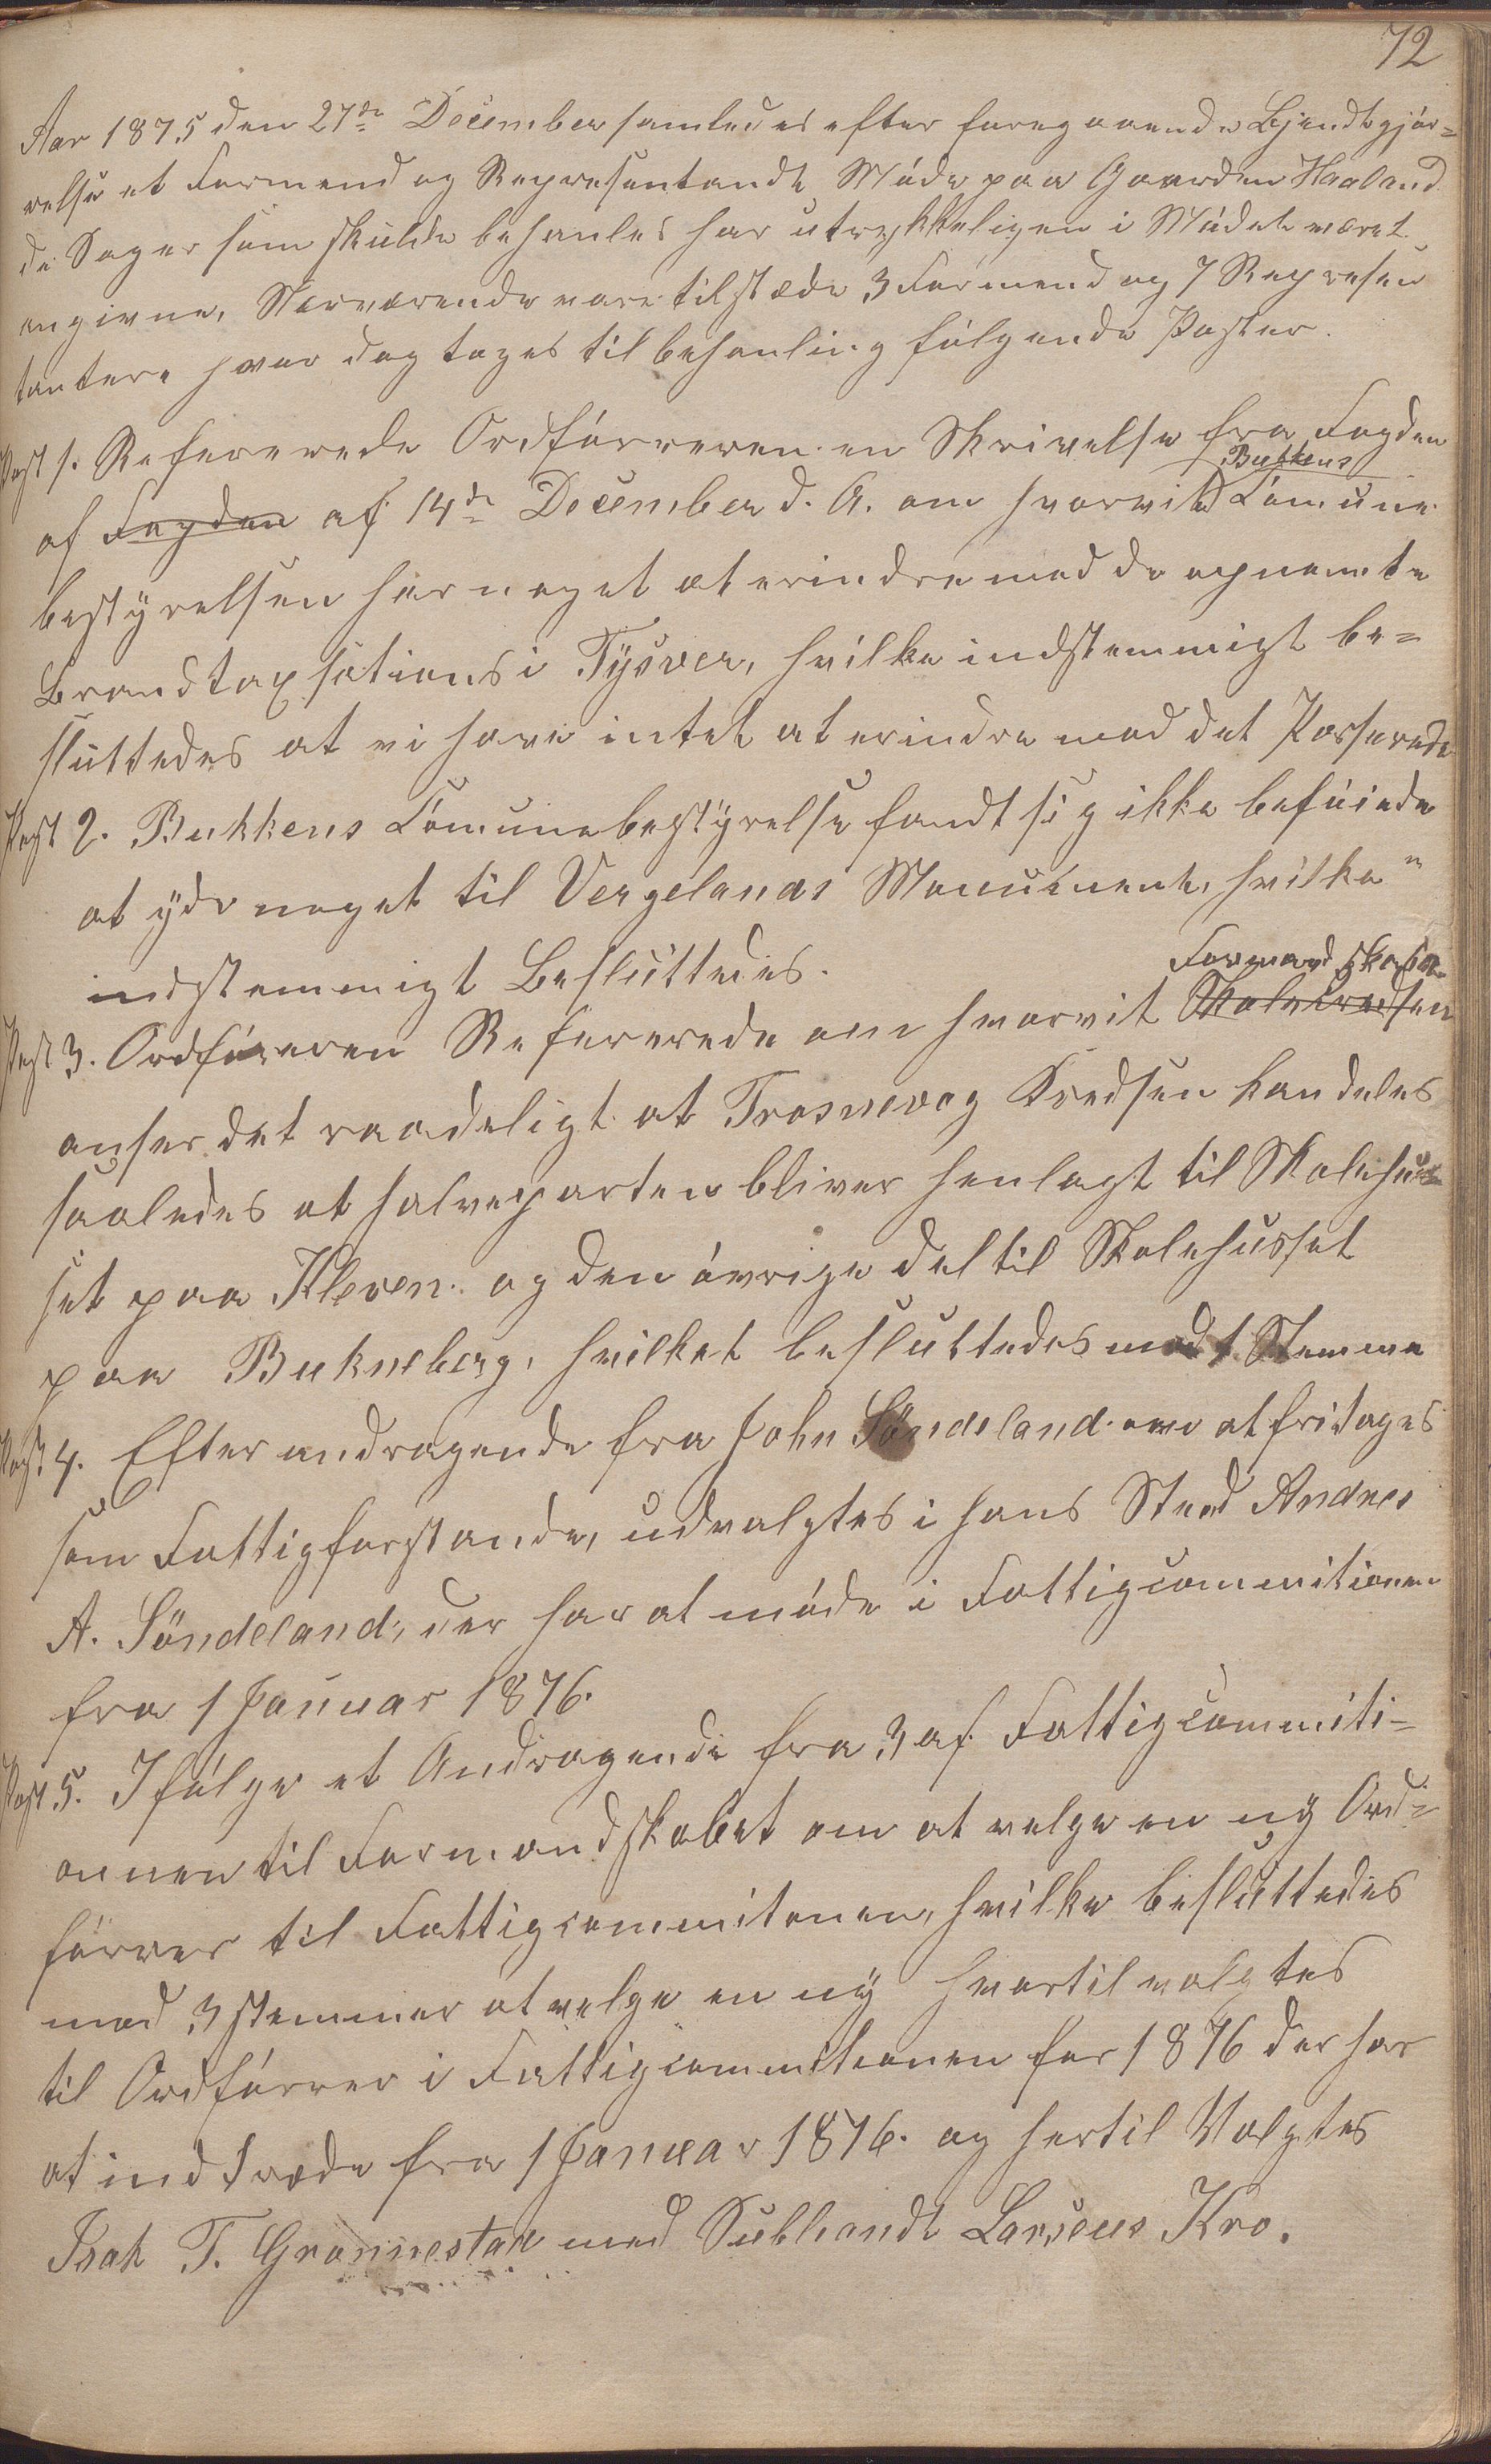 72
Aar 1875 den 27de December samledes efter foregaaende Bjendtgjör=
relse et Formend og Representandt Möde paa Gaarden Haaland
de Sager som skulde behanles har utrykkeligen i Mödet været
angivne, Nærværende vare tilstæde 3 Formend og 7 Represen
tantere hvor dog toges til behanling fölgende Poster.
Post 1. Refererede Ordförreren en Skrivelse fra Fogden
Bukkens
af Fogden af 14de December d. A. om hvorvit Comune
bestÿrelsen har noget at erindre mod de opnemte
Brandtaxsations i Tÿsver, hvilke indstemmigt be=
sluttedes at vi have intet at erindre mod det Passerede
Post 2. Bukkens Comunebestÿrelse fandt sig ikke beföiede
at ÿde noget til Vergelands Monument, hvilke
indstemmigt Besluttedes.
Formandskabe
Post 3. Ordföreren Refererede om hvorvit Skolekredsen
anser det raadeligt at Trosnevog Kredsen kan deles
saaledes at halveparten bliver henlagt til Skolehus
set paa Kleven. og den övrige del til Skolehusset
paa Bukneberg, hvilket besluttedes mod 1 Stemme
Post 4. Efter andragende fra John Söndeland om at fritages
som Fattigforstande, udvalgtes i hans Sted Andres
A. Söndeland, der har at möde i Fattigcommitionen
fra 1 Januar 1876.
Post 5. Ifölge et Andragende fra 3 af Fattigcommiti=
onnen til Formandskabet om at velge en nÿ Ord=
förrer til Fattigcommitonen, hvilke besluttedes
mod 3 stemmer at velge en nÿ hvortil valgtes
til Ordförrer i Fattigcommitionen for 1876 der har
at indtræde fra 1 Januar 1876. og hertil Valgtes
Isak T. Grønnestad med Subliandt Larsens Kro.